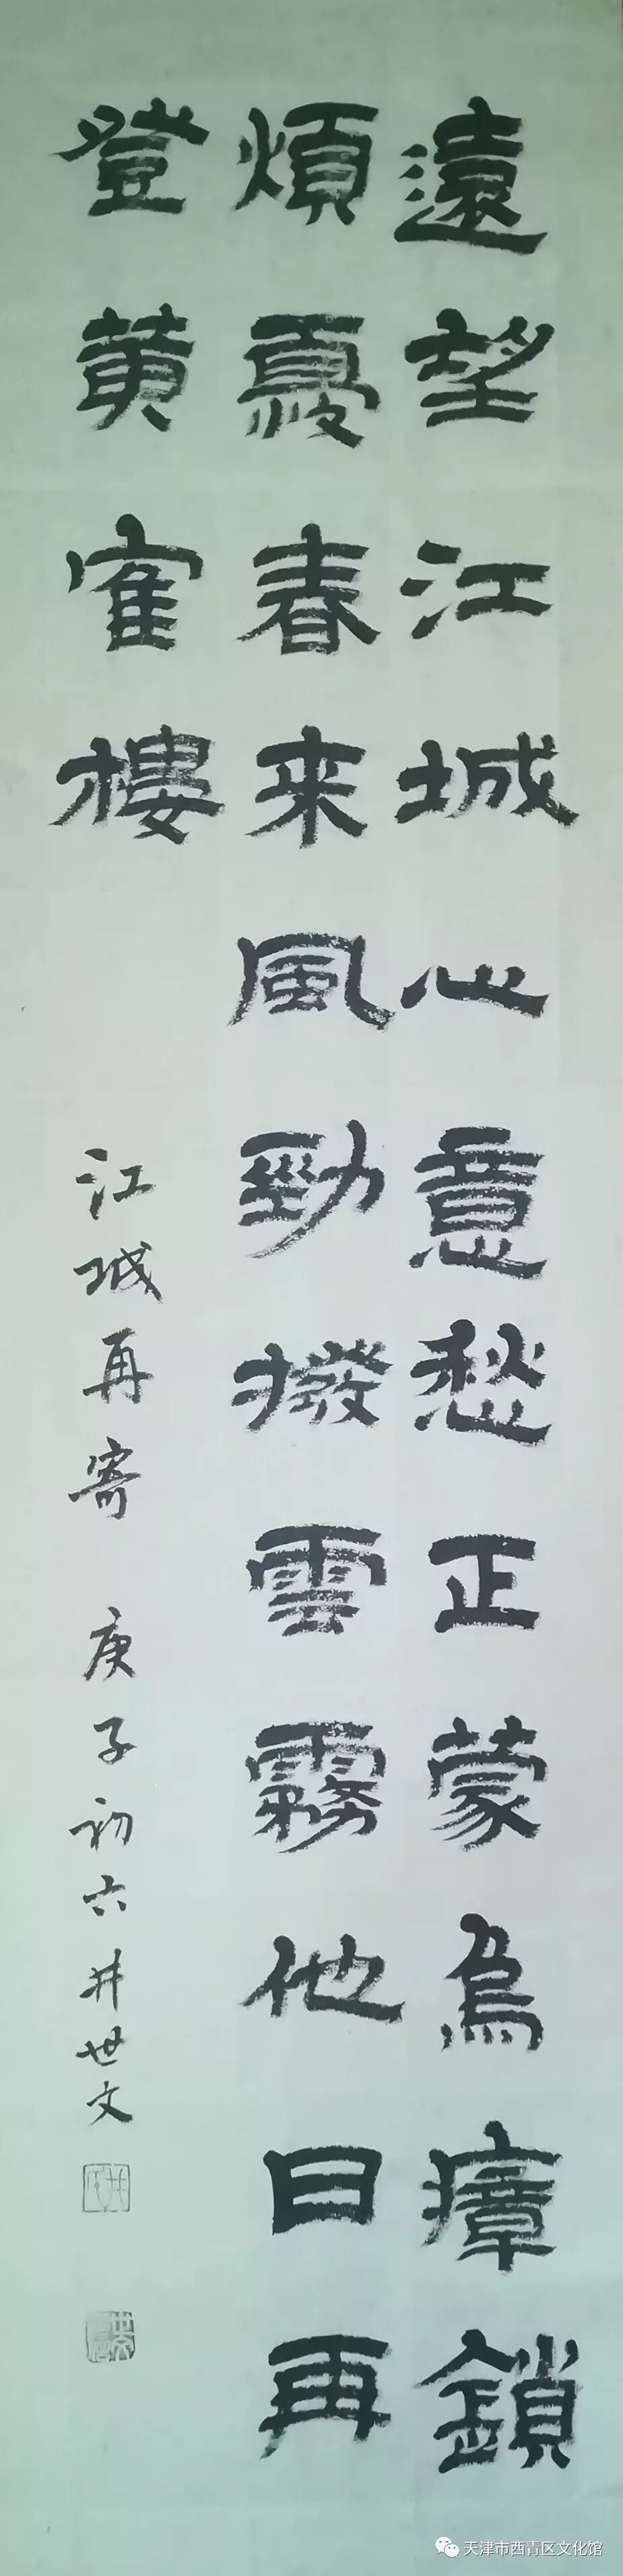 遠望江城心意愁正蒙烏瘴鎖
煩憂春來風勁撥雲霧他日再
登黄隺樓
江城再寄 庚子初六井世文
天津市西青区文化馆